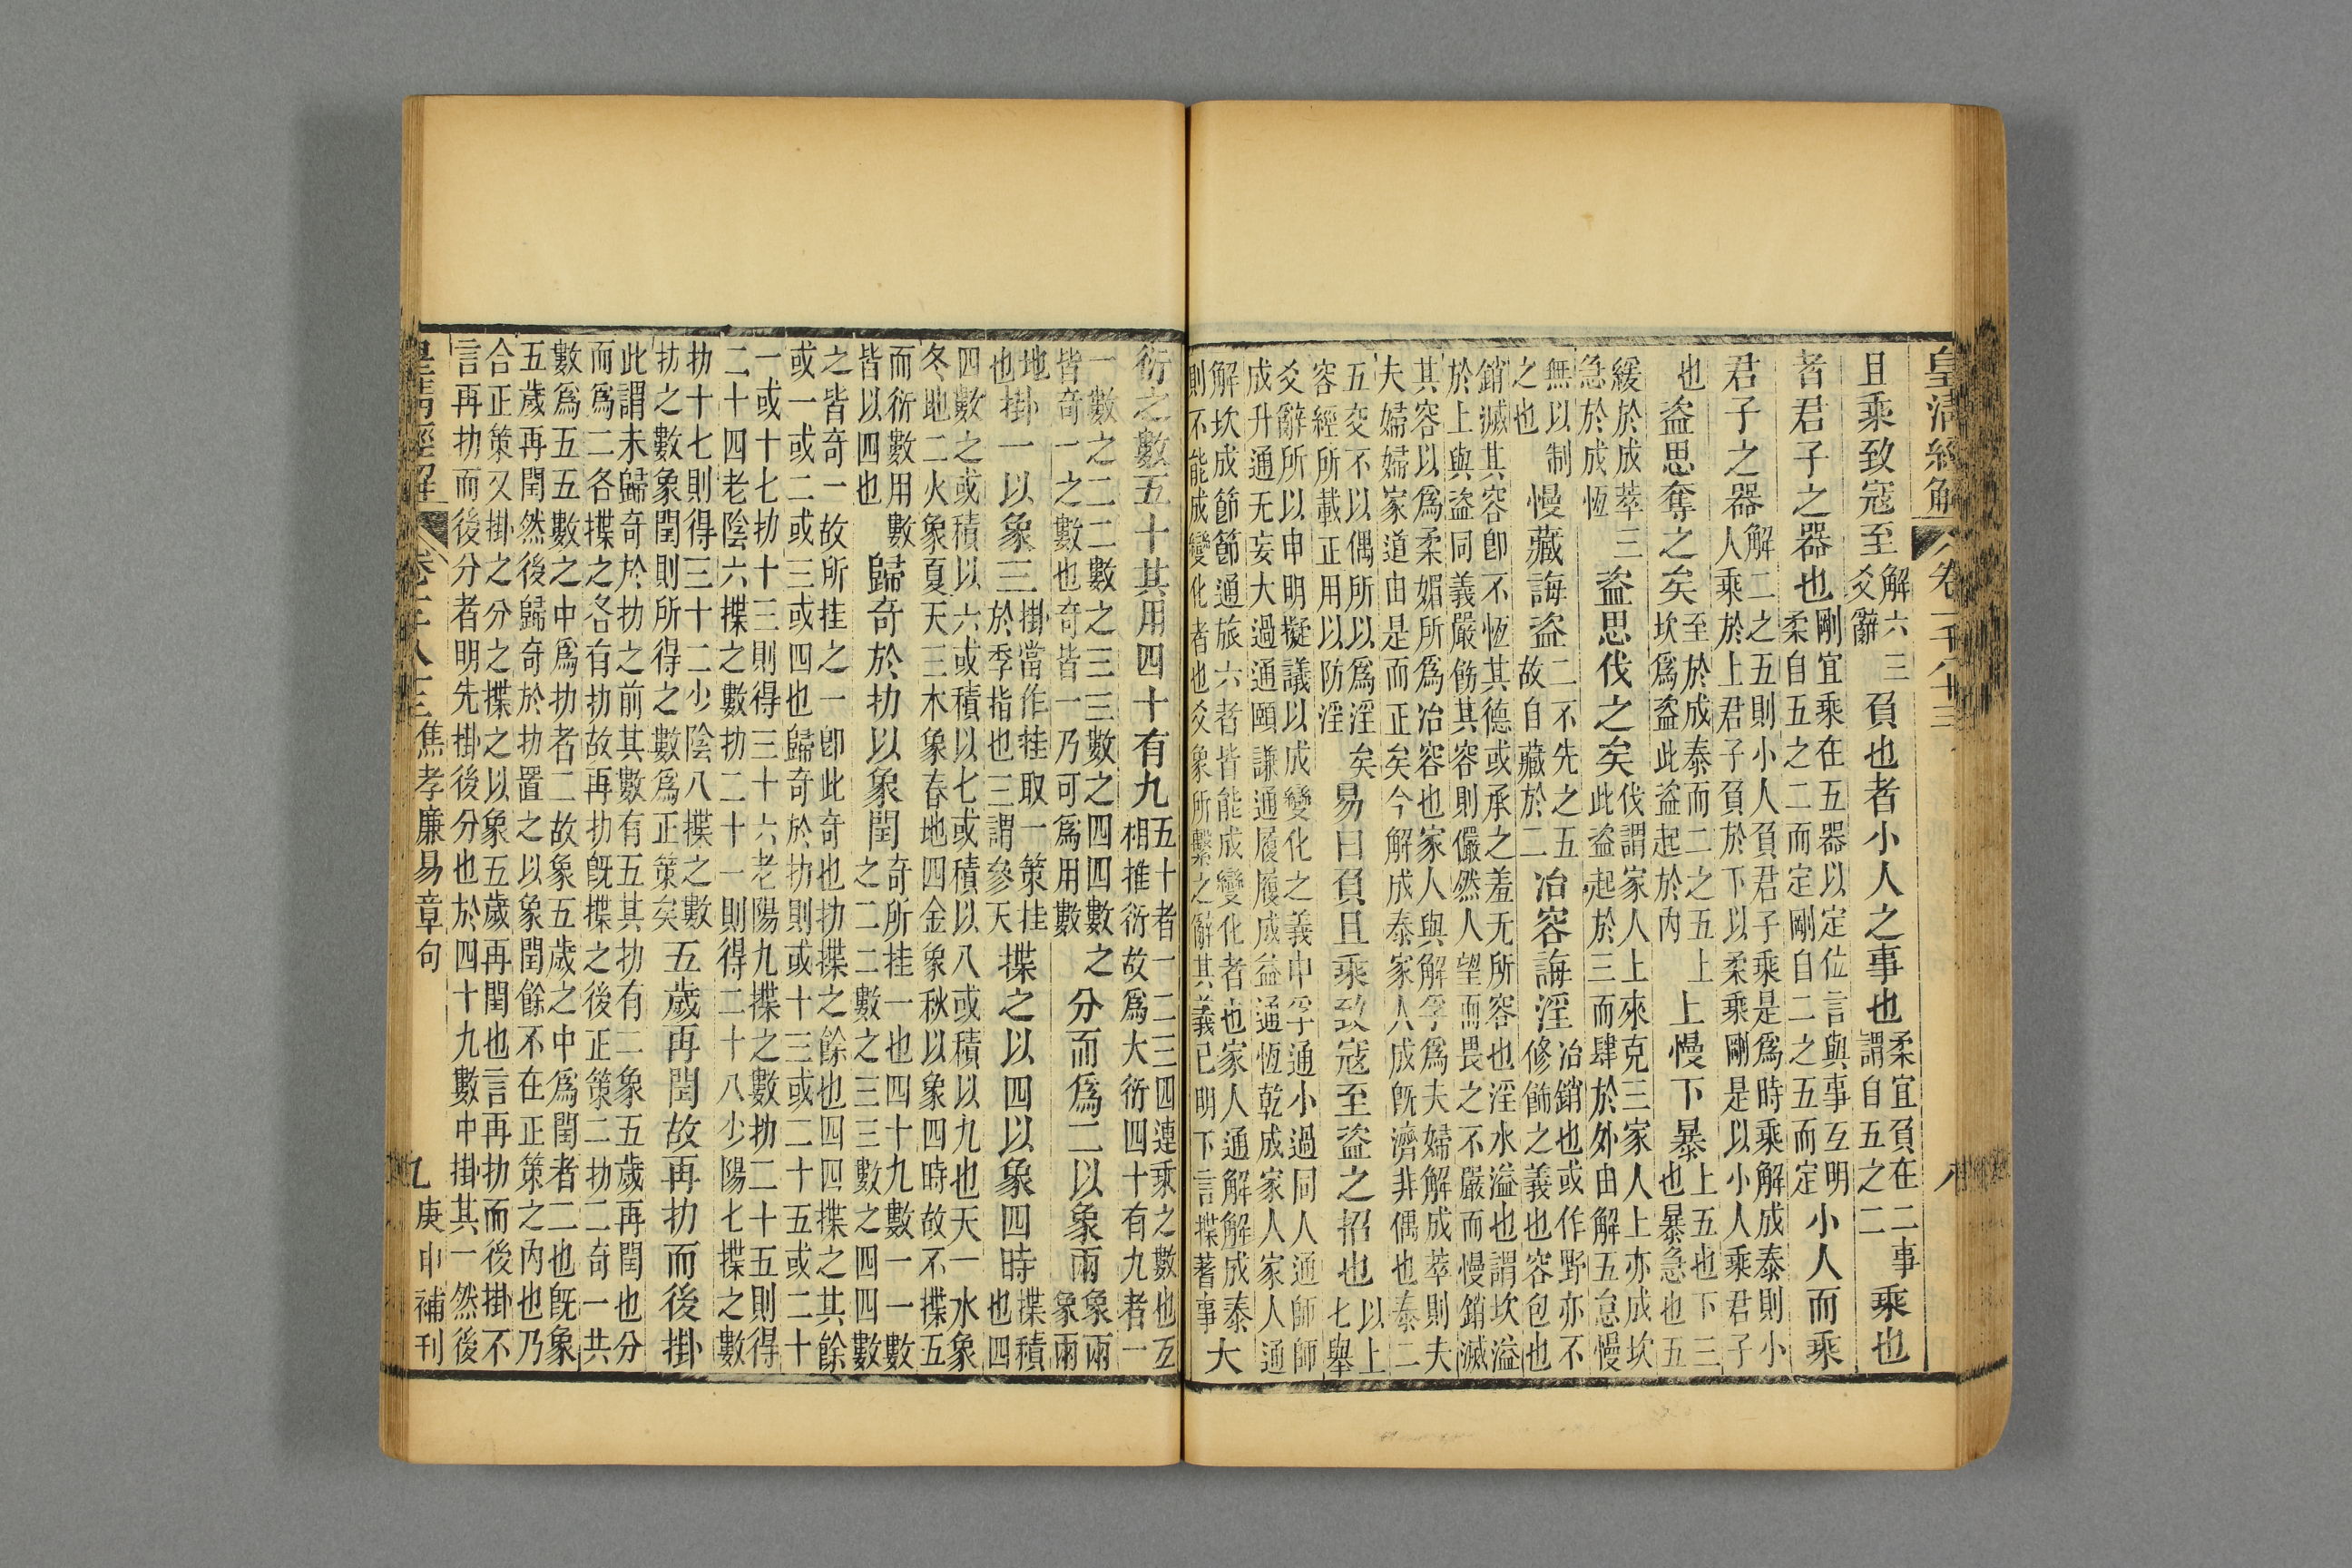 皇清經解 卷一千八十三 八
且乘致寇至解六三爻辭負也者小人之事也柔宜負在二事謂自五之二乘也
者君子之器也剛宜乘在五器以定位言與事互明柔自五之二而定剛自二之五而定小人而乘
君子之器解二之五則小人負君子乘是爲時乘解成泰則小人乘於上君子負於下以柔乘剛是以小人乘君子
也盜思奪之矣至於成泰而二之五上坎爲盜此盜起於內上慢下暴上五也下三也暴急也五
緩於成萃三急於成恆盜思伐之矣伐謂家人上來克三家人上亦成坎此盜起於三而肆於外由解五怠慢
無以制之也慢藏誨盜二不先之五故自藏於二冶容誨淫冶銷也或作野亦不修飾之義也容包也
銷滅其容卽不恆其德或承之羞无所容也淫水溢也謂坎溢
於上與盜同義嚴飭其容容則儼然人望而畏之不嚴而慢銷滅
其容以爲柔媚所爲冶容也家人與解孚爲夫婦解成萃則夫
夫婦婦家道由是而正矣今解成泰家人成旣濟非偶也泰二
五交不以偶所以爲淫矣容經所載正用以防淫易曰負且乘致寇至盜之招也以上七舉
爻辭所以申明擬議以成變化之義中孚通小過同人通師師
成升通无妄大過通頤謙通履履成益通恆乾成家人家人通
解坎成節節通旅六者皆能成變化者也家人通解解成泰則不能成變化者也爻象所繫之辭其義已明下言揲蓍事大
衍之數五十其用四十有九五十者一二三四連乘之數也五相推衍故爲大衍四十有九者一
一數之二二數之三三數之四四數之皆奇一之數也奇皆一乃可爲用數分而爲二以象兩象兩象兩
地也掛一以象三掛當作挂取一策挂於季指也三謂參天揲之以四以象四時揲積也四
四數之或積以六或積以七或積以八或積以九也天一水象
冬地二火象夏天三木象春地四金象秋以象四時故不揲五
而衍數用數皆以四也歸奇於扐以象閏奇所挂一也四十九數一一數之二二數之三三數之四四數
之皆奇一故所挂之一卽此奇也扐揲之餘也四四揲之其餘
或一或二或三或四也歸奇於扐則或十三或二十五或二十
一或十七扐十三則得三十六老陽九揲之數扐二十五則得
二十四老陰六揲之數扐二十一則得二十八少陽七揲之數
扐十七則得三十二少陰八揲之數扐之數象閏則所得之數爲正策矣五歲再閏故再扐而後掛
此謂未歸奇於扐之前其數有五其扐有二象五歲再閏也分
而爲二各揲之各有扐故再扐旣揲之後正策二扐二奇一共
數爲五五數之中爲扐者二故象五歲之中爲閏者二也旣象
五歲再閏然後歸奇於扐置之以象閏餘不在正策之內也乃
合正策又掛之分之揲之以象五歲再閏也言再扐而後掛不
言再扐而後分者明先掛後分也於四十九數中掛其一然後
皇清經解 卷一千八十三 焦孝廉易章句 九 庚申補刊